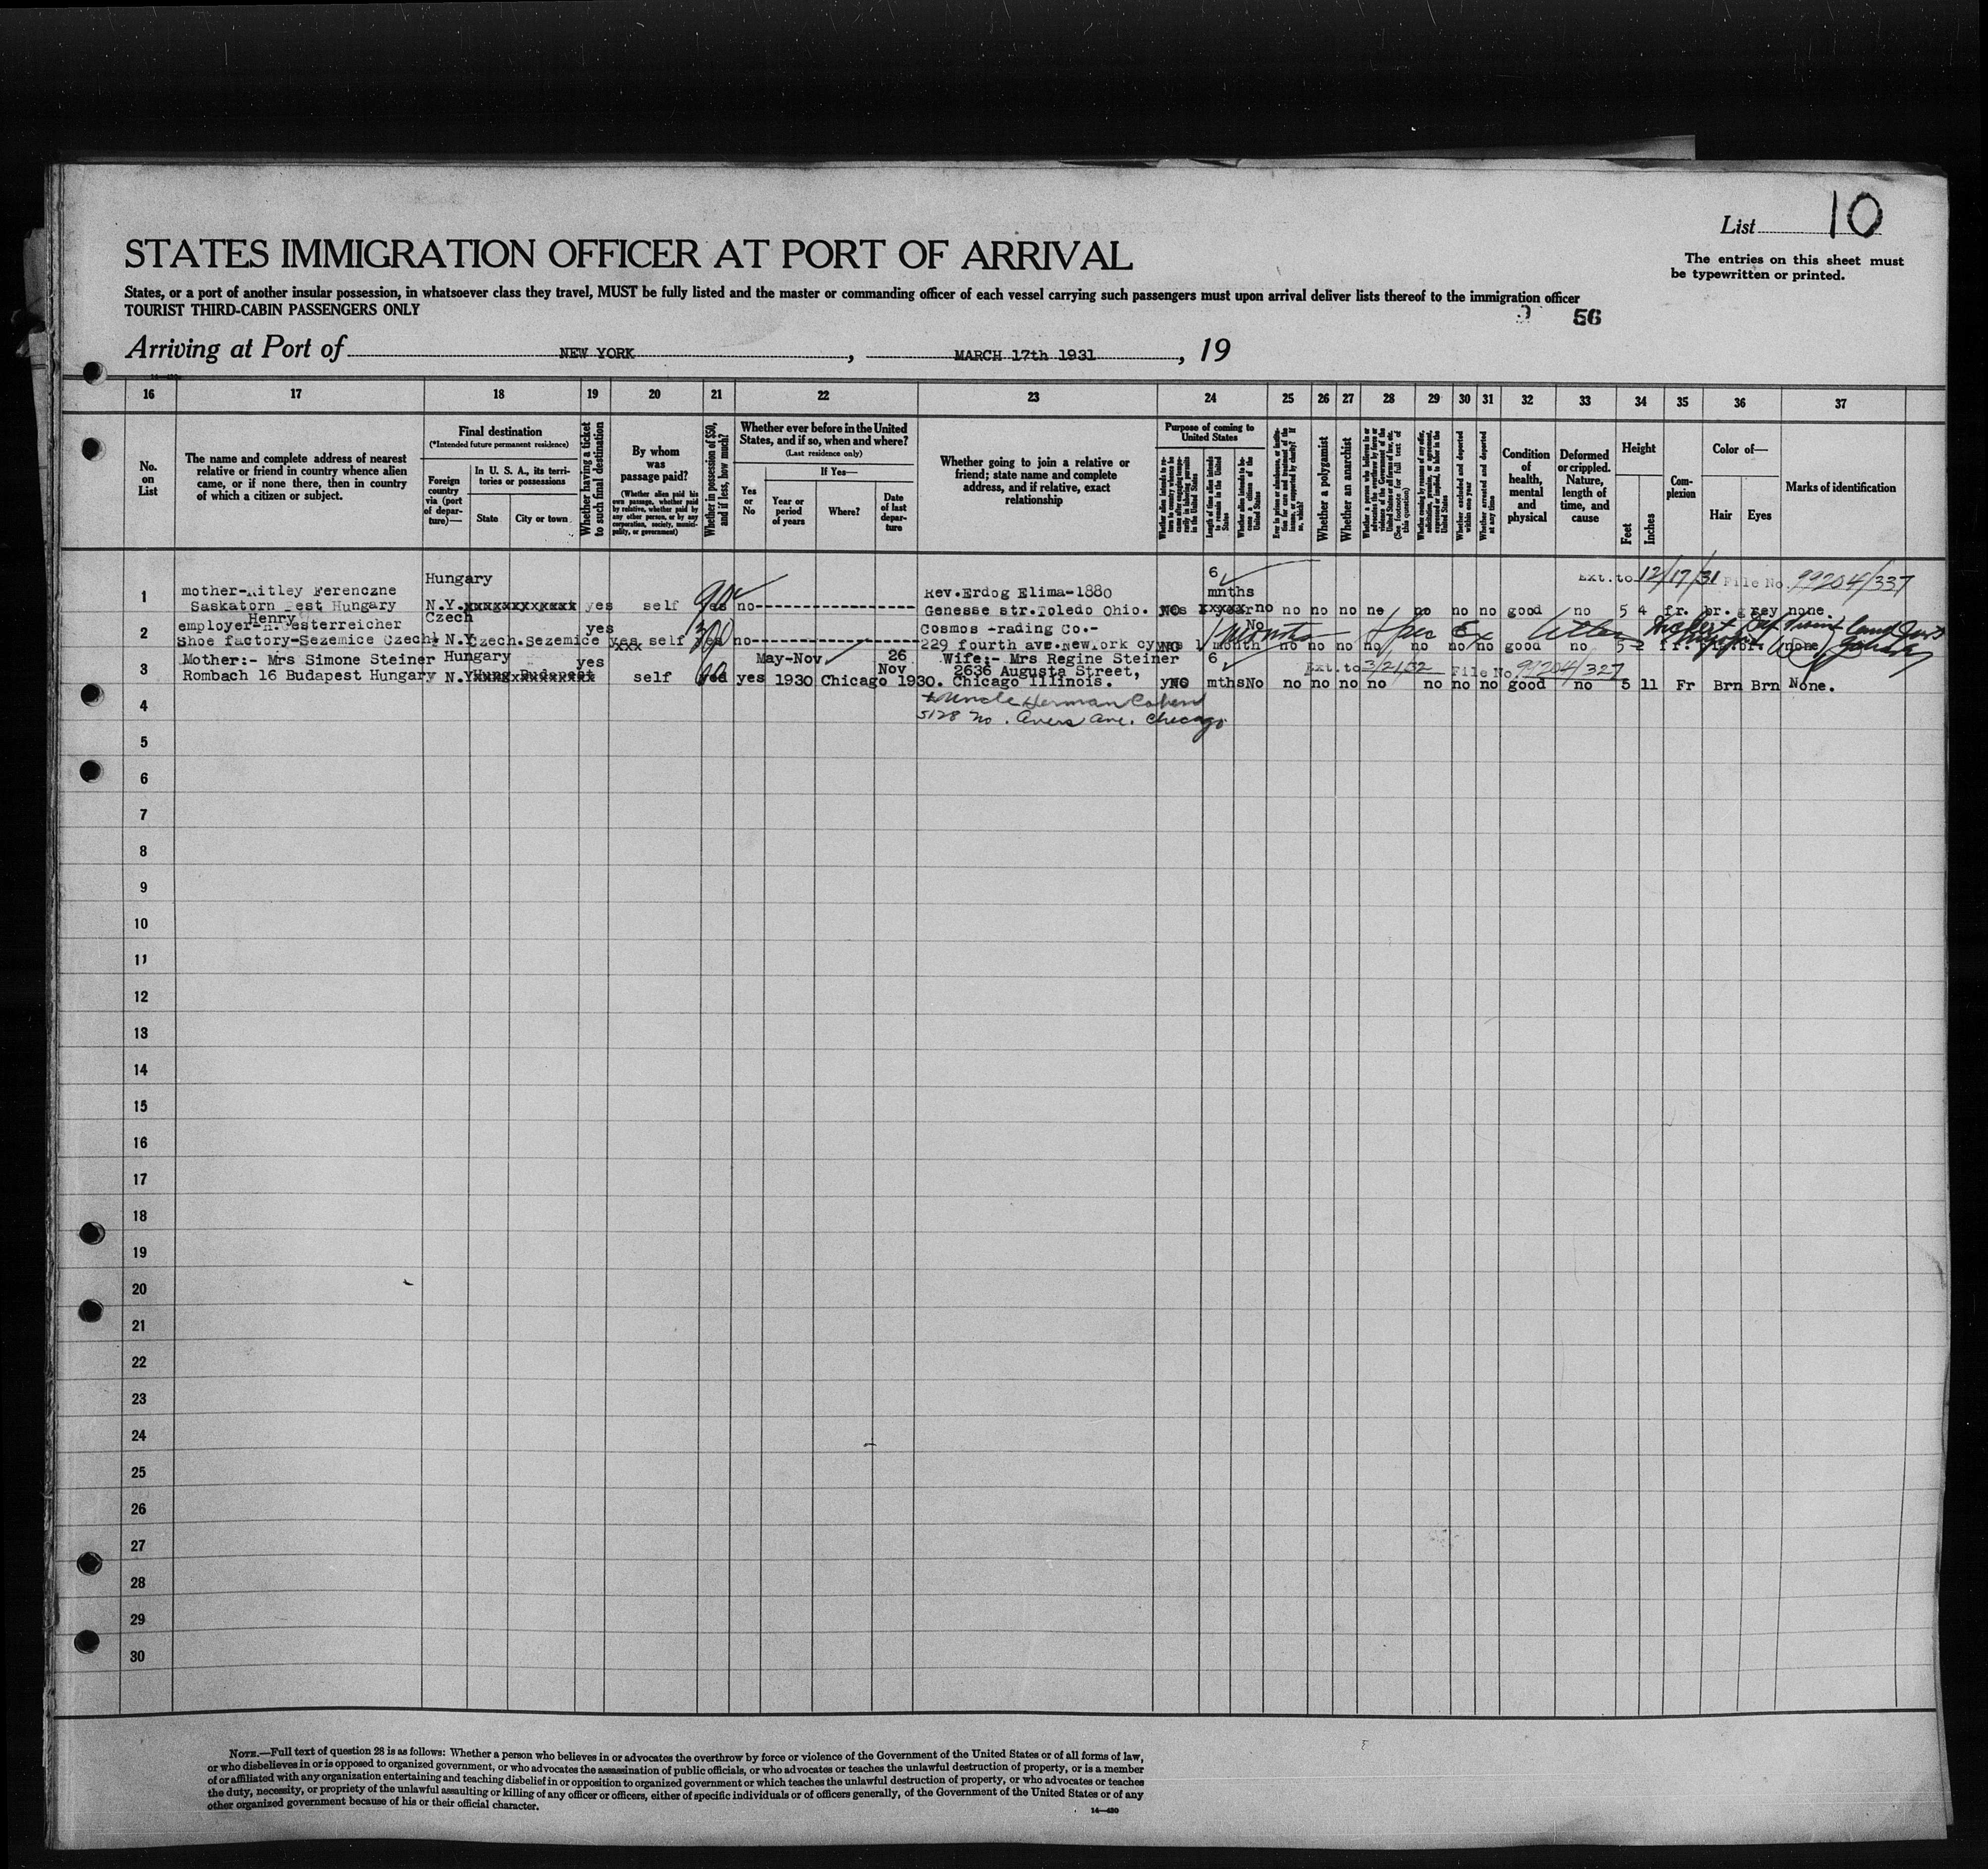 List 10
The entries on this sheet must
be typewritten or printed.
STATES IMMIGRATION OFFICER AT PORT OF ARRIVAL
States, or a port of another insular possession, in whatsoever class they travel, MUST be fully listed and the master or commanding officer of each vessel carrying such passengers must upon arrival deliver lists thereof to the immigration officer
TOURIST THIRD-CABIN PASSENGERS ONLY
56
Arriving at Port of NEW YORK , MARCH 17th 1931 , 19
16 17 18 19 20 21 22 23 24 25 26 27 28 29 30 31 32 33 34 35 36 37
No. on List
The name and complete address of nearest
relative or friend in country whence alien
came, or if none there, then in country
of which a citizen or subject.
Final destination
(*Intended future permanent residence)
Foreign country via (port of departure)—
In U. S. A., its territories or possessions
State
City or town
Whether having a ticket to such final destination
By whom was passage paid?
(Whether alien paid his own passage, whether paid by relative, whether paid by any other person, or by any corporation, society, municipality, or government)
Whether in possession of $50, and if less, how much?
Whether ever before in the United
States, and if so, when and where?
(Last residence only)
Yes or No
If Yes—
Year or period of years
Where?
Date of last departure
Whether going to join a relative or
friend; state name and complete
address, and if relative, exact
relationship
Purpose of coming to
United States
Length of time alien intends to remain in the United States
Whether alien intends to become a citizen of the United States
Whether a polygamist
Whether an anarchist
(See footnote for full text of this question)
Whether excluded and deported within one year
Whether arrested and deported at any time
Condition of health, mental and physical
Deformed or crippled. Nature, length of time, and cause
Height
Feet
Inches
Complexion
Color of—
Hair
Eyes
Marks of identification
Hungary 6 Ext. to 12/17/31 File No. 99204/337
1 mother-Kitley Ferenczne Rev.Erdog Elima-1880 mnths
Saskatorn Pest Hungary N.Y. xxxxxxxxxxxxx yes self yes no Genesse str.Toledo Ohio. no no no no no no no no good no 5 4 fr. br. grey none.
Henry Czech
2 employer- Oesterreicher yes Cosmos Trading Co.- No
Shoe factory-Sezemice Czech. N.Y. Czech.Sezemice yes xxx self yes no 229 fourth ave.NewYork cy 1 month no no no no no no no good no 5 2 fr. br. none
3 Mother:- Mrs Simone Steiner Hungary yes May-Nov 26 Wife:- Mrs Regine Steiner 6
Nov 2636 Augusta Street, Ext. to 3/21/32 File No. 99204/327
Rombach 16 Budapest Hungary N.Y. Hung Budapest self yes 1930 Chicago 1930. Chicago Illinois. mths No no no no no no no no good no 5 11 Fr Brn Brn None.
4 Uncle Herman Cohen
5128 No. Avers Ave. Chicago
5
6
7
8
9
10
11
12
13
14
15
16
17
18
19
20
21
22
23
24
25
26
27
28
29
30
NOTE.—Full text of question 28 is as follows: Whether a person who believes in or advocates the overthrow by force or violence of the Government of the United States or of all forms of law,
or who disbelieves in or is opposed to organized government, or who advocates the assassination of public officials, or who advocates or teaches the unlawful destruction of property, or is a member
of or affiliated with any organization entertaining and teaching disbelief in or opposition to organized government or which teaches the unlawful destruction of property, or who advocates or teaches
the duty, necessity, or propriety of the unlawful assaulting or killing of any officer or officers, either of specific individuals or of officers generally, of the Government of the United States or of any
other organized government because of his or their official character.
14—430